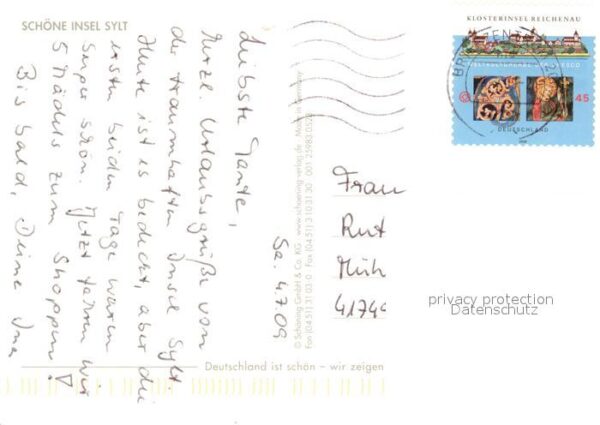 SCHÖNE INSEL SYLT
Sa. 4.7.09
Liebste Tante,
Herzl. Urlaubsgrüße von
der traumhaften Insel Sylt.
Heute ist es bedeckt, aber die
ersten beiden Tage waren
super schön. Jetzt fahren wir
5 Mädels zum Shoppen!
Bis bald, Deine
© Schöning GmbH & Co. KG · www.schoening-verlag.de · Made in Germany
Fon (04 51) 3 10 3 0 · Fax (04 51) 3 10 31 30
Deutschland ist schön – wir zeigen
KLOSTERINSEL REICHENAU
WELTKULTURERBE DER UNESCO
45
DEUTSCHLAND
Frau
Rut
Müh
4174
privacy protection
Datenschutz